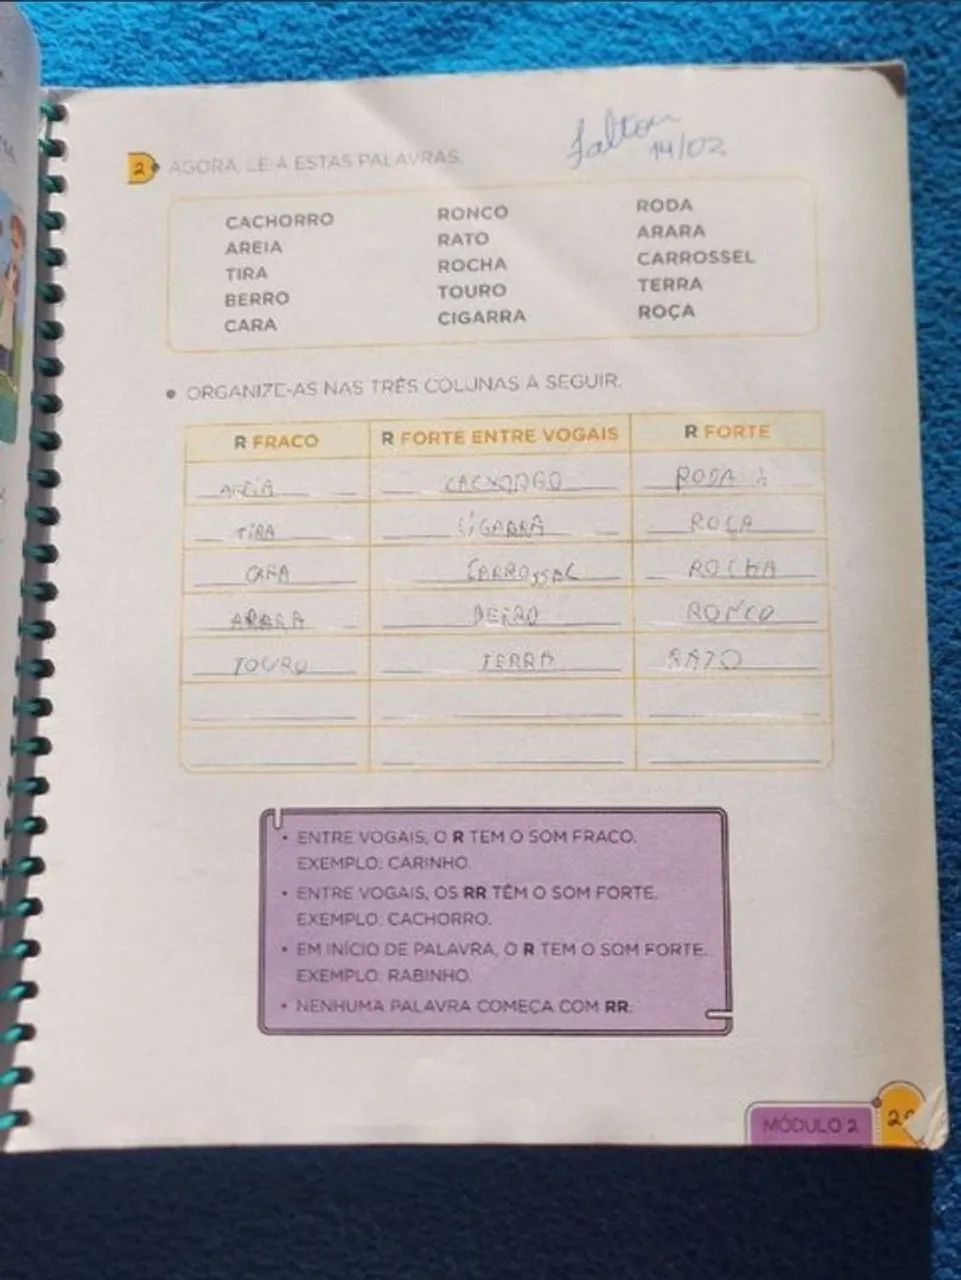 Faltou
14/02
2 AGORA, LEIA ESTAS PALAVRAS.
CACHORRO RONCO RODA
AREIA RATO ARARA
TIRA ROCHA CARROSSEL
BERRO TOURO TERRA
CARA CIGARRA ROÇA
• ORGANIZE-AS NAS TRÊS COLUNAS A SEGUIR.
R FRACO R FORTE ENTRE VOGAIS R FORTE
AREIA CACXORRO RODA
TIRA CIGARRA ROÇA
CARA CARROSSAL ROCHA
ARARA BERRO RONCO
TOURO TERRA RATO
• ENTRE VOGAIS, O R TEM O SOM FRACO.
EXEMPLO: CARINHO.
• ENTRE VOGAIS, OS RR TÊM O SOM FORTE.
EXEMPLO: CACHORRO.
• EM INÍCIO DE PALAVRA, O R TEM O SOM FORTE.
EXEMPLO: RABINHO.
• NENHUMA PALAVRA COMEÇA COM RR.
MÓDULO 2